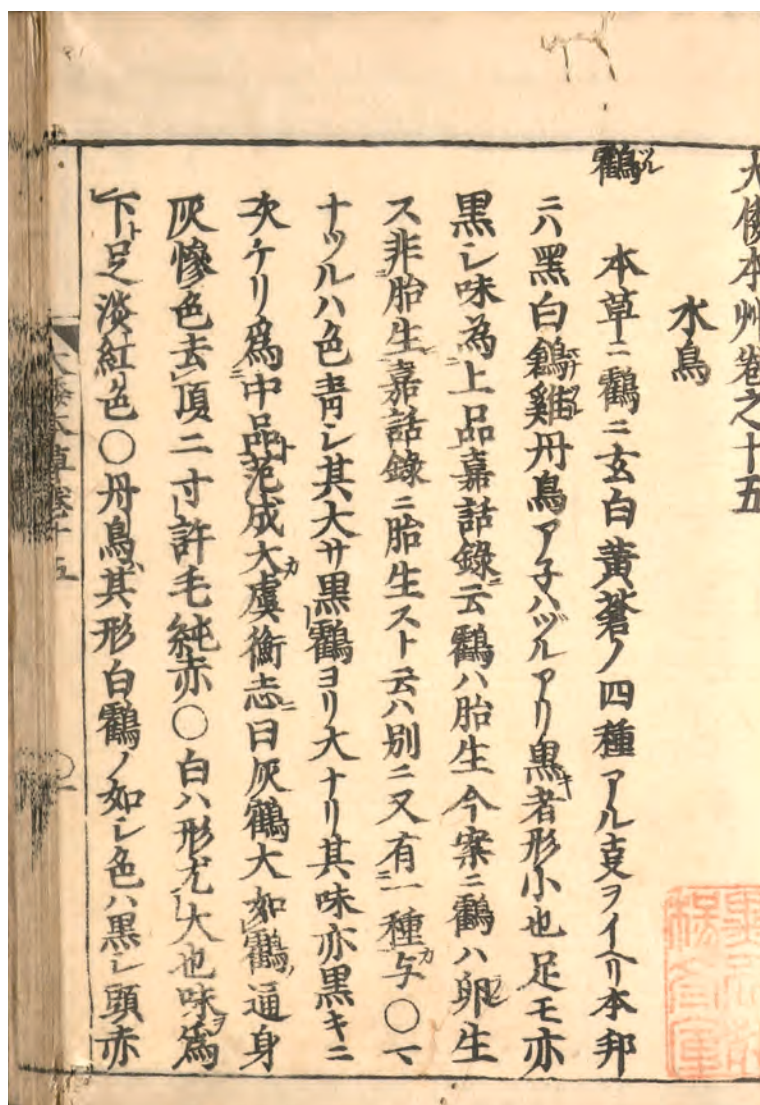 大倭本艸卷之十五
水鳥
鸖ツル 本草ニ鸖ニ玄白黃蒼ノ四種アル支ヲイヘリ本邦
ニハ黑白鶬雞丹鳥アネハヅルアリ黒キ者形小也足モ亦
黒シ味為上品嘉話錄ニ云鸖ハ胎生今案ニ鸖ハ卵生
ス非胎生嘉話錄ニ胎生スト云ハ別ニ又有一種カ与〇マ
ナヅルハ色靑シ其大サ黒鸖ヨリ大ナリ其味亦黒キニ
次ケリ爲中品范成大カ虞衡志ニ曰灰鶴大如鸖通身
灰惨色去頂二寸許毛純赤〇白ハ形尤大也味ヲ爲
下ト足淡紅色〇丹鳥其形白鸖ノ如シ色ハ黒シ頭赤